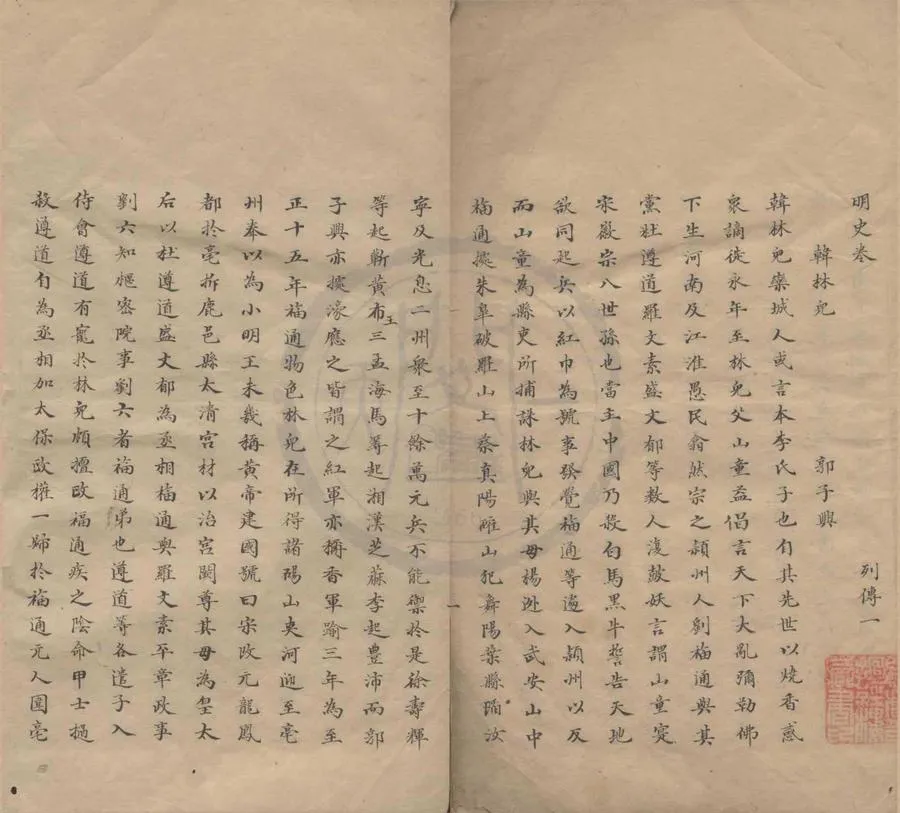 明史卷 列傳一
韓林兒 郭子興
韓林兒欒城人或言本李氏子也自其先世以燒香惑
衆謫徙永年至林兒父山童益倡言天下大亂彌勒佛
下生河南及江淮愚民翕然宗之潁州人劉福通與其
黨杜遵道羅文素盛文郁等數人復鼓妖言謂山童實
宋徽宗八世孫也當主中國乃殺白馬黑牛誓告天地
欲同起兵以紅巾為號事發覺福通等遽入潁州以反
而山童為縣吏所捕誅林兒與其母楊逃入武安山中
福通據朱臯破羅山上蔡真陽確山犯舞陽葉縣陷汝
寧及光息二州衆至十餘萬元兵不能禦於是徐壽輝
等起蘄黃布王三孟海馬等起湘漢芝蔴李起豐沛而郭
子興亦據濠應之皆謂之紅軍亦稱香軍踰三年為至
正十五年福通物色林兒在所得諸碭山夾河迎至亳
州奉以為小明王未幾稱黃帝建國號曰宋改元龍鳳
都於亳拆鹿邑縣太清宮材以治宮闕尊其母為皇太
后以杜遵道盛文郁為丞相福通與羅文素平章政事
劉六知樞密院事劉六者福通弟也遵道等各遣子入
侍會遵道有寵於林兒頗擅政福通疾之陰命甲士撾
殺遵道自為丞相加太保政權一歸於福通元人圍亳
一